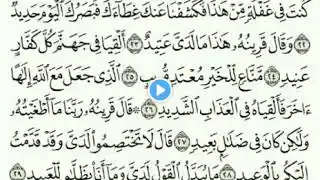 كُنتَ فِي غَفْلَةٍ مِّنْ هَٰذَا فَكَشَفْنَا عَنكَ غِطَآءَكَ فَبَصَرُكَ ٱلْيَوْمَ حَدِيدٌ
٢٢ وَقَالَ قَرِينُهُۥ هَٰذَا مَا لَدَىَّ عَتِيدٌ ٢٣ أَلْقِيَا فِي جَهَنَّمَ كُلَّ كَفَّارٍ
عَنِيدٍ ٢٤ مَّنَّاعٍ لِّلْخَيْرِ مُعْتَدٍ مُّرِيبٍ ٢٥ ٱلَّذِى جَعَلَ مَعَ ٱللَّهِ إِلَٰهًا
ءَاخَرَ فَأَلْقِيَاهُ فِي ٱلْعَذَابِ ٱلشَّدِيدِ ٢٦ ۞ قَالَ قَرِينُهُۥ رَبَّنَا مَآ أَطْغَيْتُهُۥ
وَلَٰكِن كَانَ فِي ضَلَٰلٍۭ بَعِيدٍ ٢٧ قَالَ لَا تَخْتَصِمُوا۟ لَدَىَّ وَقَدْ قَدَّمْتُ
إِلَيْكُم بِٱلْوَعِيدِ ٢٨ مَا يُبَدَّلُ ٱلْقَوْلُ لَدَىَّ وَمَآ أَنَا۠ بِظَلَّٰمٍ لِّلْعَبِيدِ ٢٩